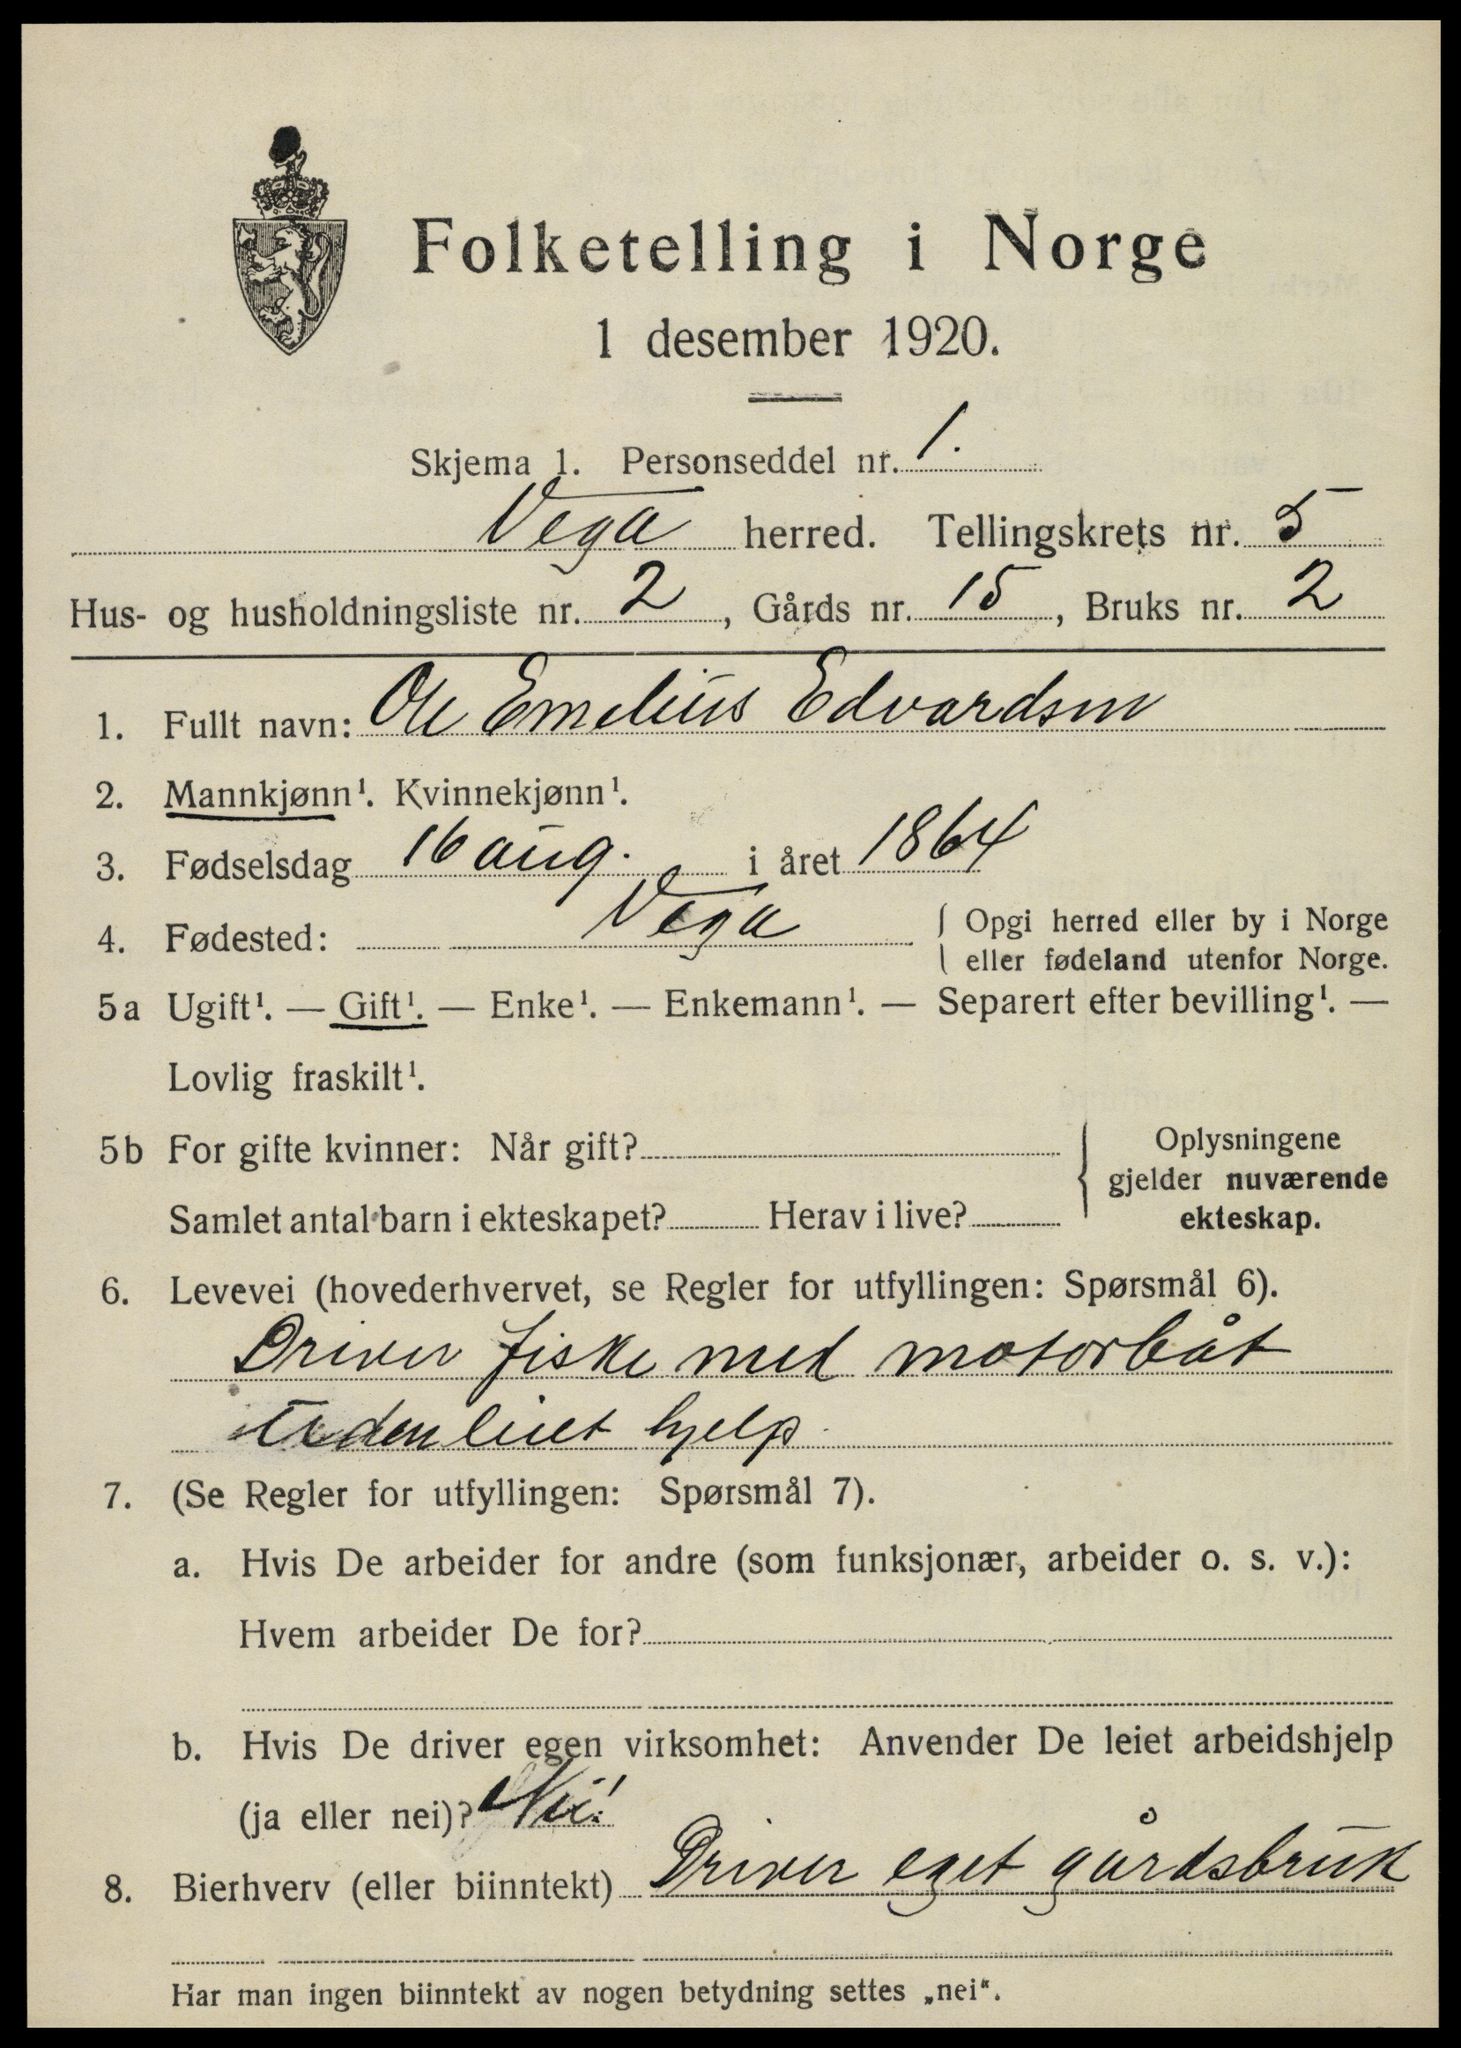 Folketelling i Norge
1 desember 1920.
Skjema 1. Personseddel nr. 1.
Vega herred. Tellingskrets nr. 5
Hus- og husholdningsliste nr. 2, Gårds nr. 15, Bruks nr. 2
1. Fullt navn: Ole Emelius Edvardsen
2. Mannkjønn¹. Kvinnekjønn¹.
3. Fødselsdag 16 aug. i året 1864
4. Fødested: Vega { Opgi herred eller by i Norge
eller fødeland utenfor Norge.
5a Ugift¹. — Gift¹. — Enke¹. — Enkemann¹. — Separert efter bevilling¹. —
Lovlig fraskilt¹.
5b For gifte kvinner: Når gift?
Samlet antal barn i ekteskapet? Herav i live?
Oplysningene
gjelder nuværende
ekteskap.
6. Levevei (hovederhvervet, se Regler for utfyllingen: Spørsmål 6).
Driver fiske med motorbåt
uden leiet hjelp.
7. (Se Regler for utfyllingen: Spørsmål 7).
a. Hvis De arbeider for andre (som funksjonær, arbeider o. s. v.):
Hvem arbeider De for?
b. Hvis De driver egen virksomhet: Anvender De leiet arbeidshjelp
(ja eller nei)? Nei!
8. Bierhverv (eller biinntekt) Driver eget gårdsbruk
Har man ingen biinntekt av nogen betydning settes „nei“.